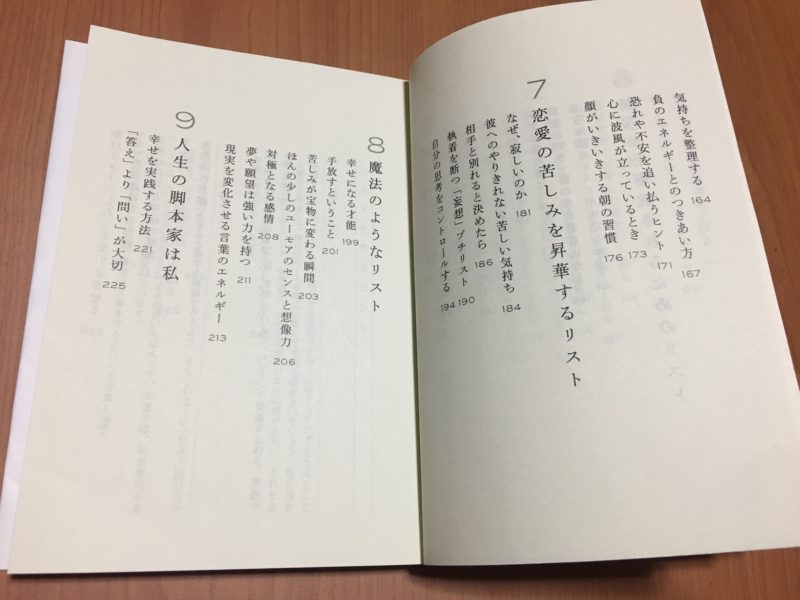 気持ちを整理する 164
負のエネルギーとのつきあい方 167
恐れや不安を追い払うヒント 171
心に波風が立っているとき 173
顔がいきいきする朝の習慣 176
7 恋愛の苦しみを昇華するリスト
なぜ、寂しいのか 181
彼へのやりきれない苦しい気持ち 184
相手と別れると決めたら 186
執着を断つ「妄想」プチリスト 190
自分の思考をコントロールする 194
8 魔法のようなリスト
幸せになる才能 199
手放すということ 201
苦しみが宝物に変わる瞬間 203
ほんの少しのユーモアのセンスと想像力 206
対極となる感情 208
夢や願望は強い力を持つ 211
現実を変化させる言葉のエネルギー 213
9 人生の脚本家は私
幸せを実践する方法 221
「答え」より「問い」が大切 225